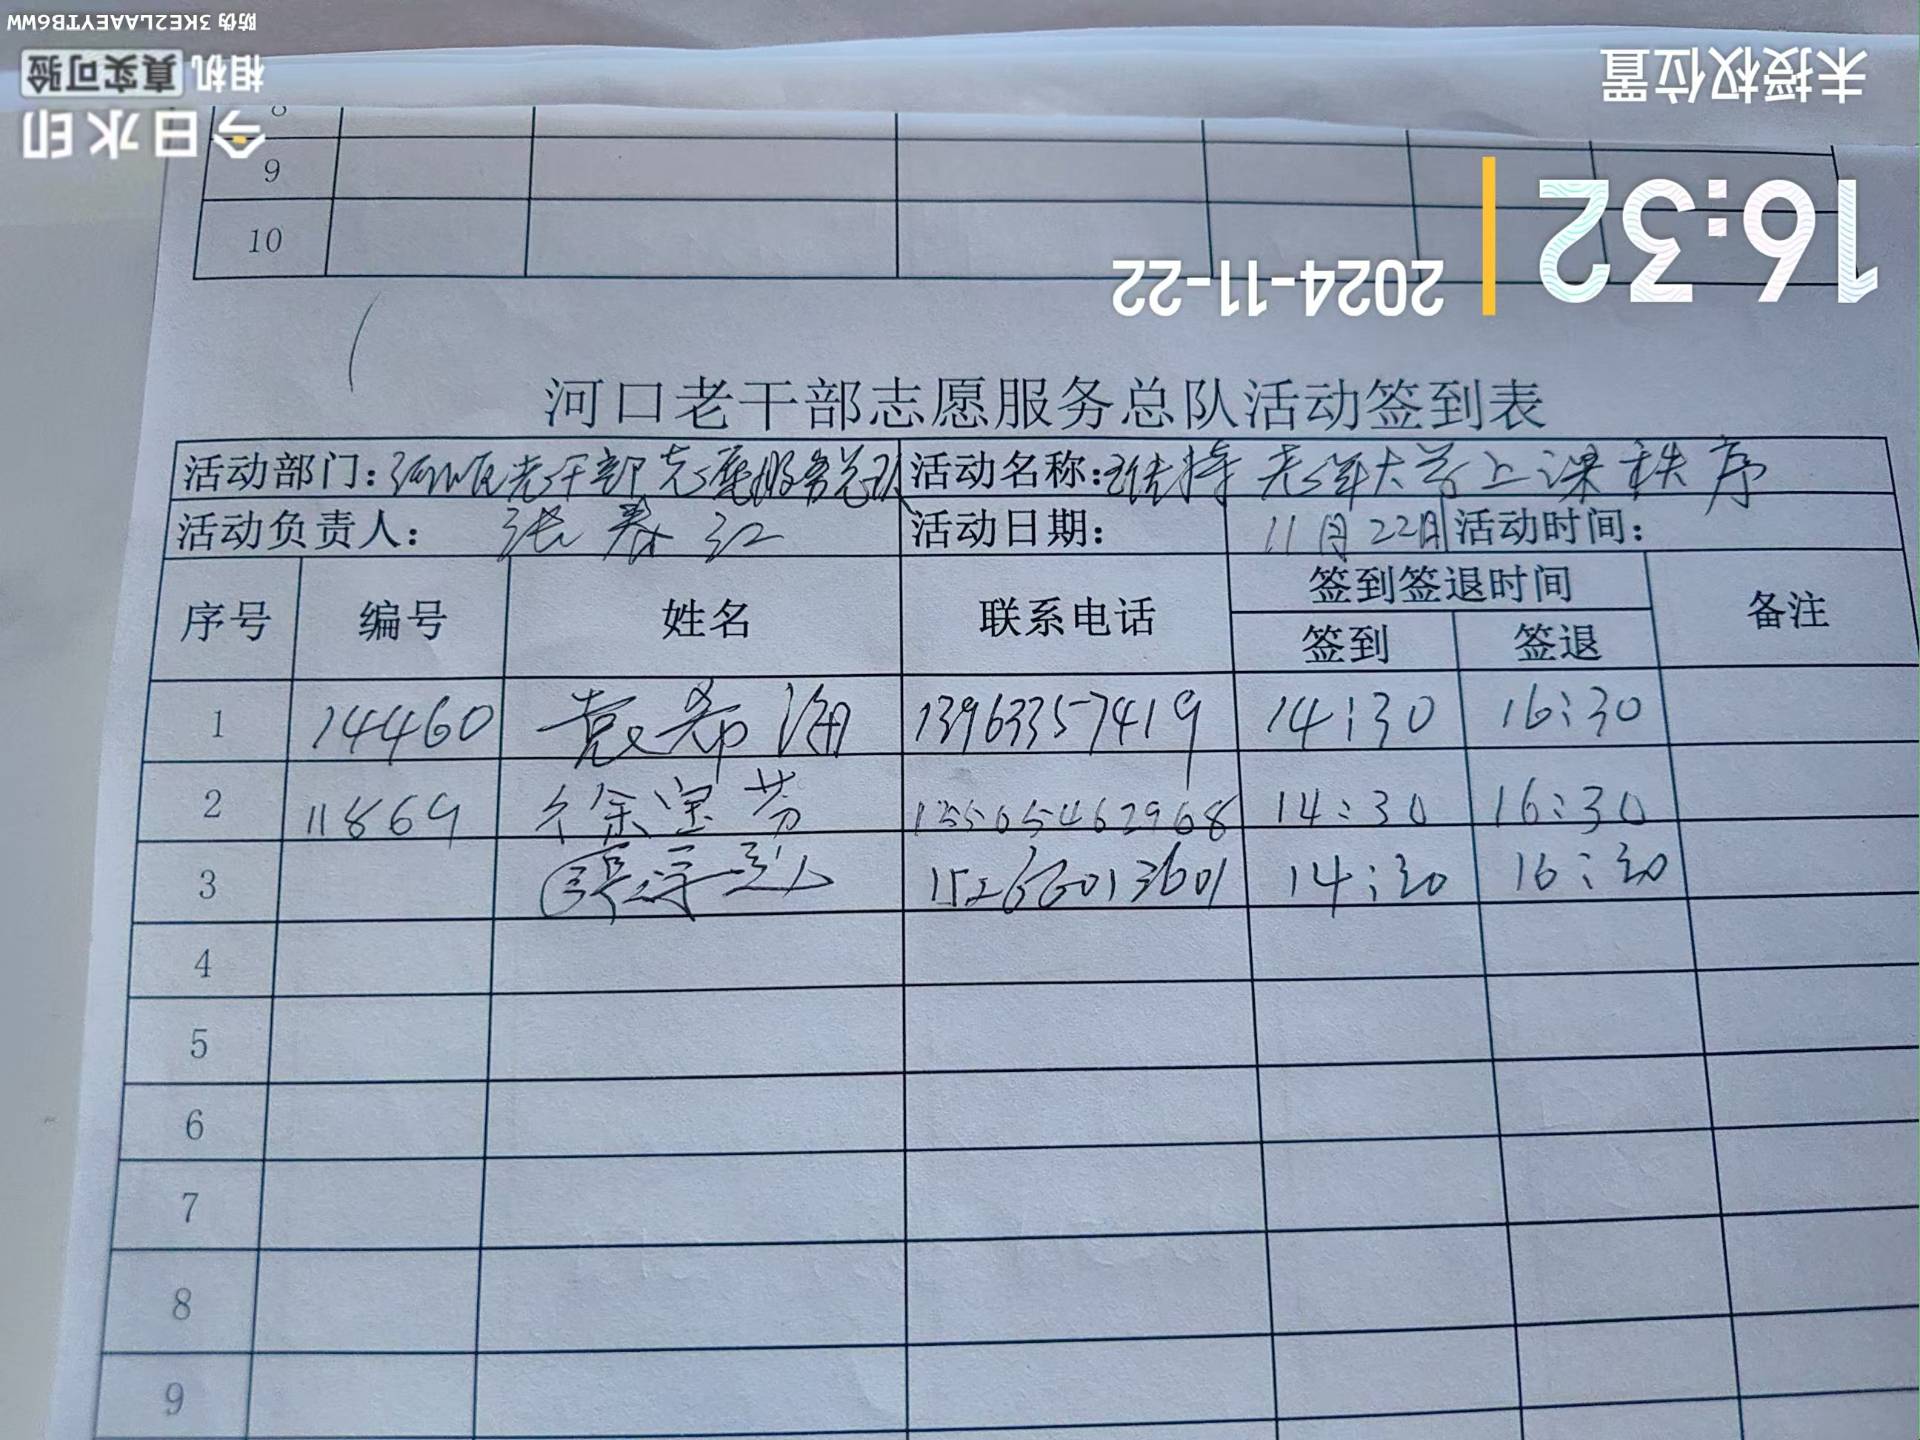 防伪 3KE2LAAEYTB6WW
相机 真实可验
今日水印
未授权位置
16:32
2024-11-22
8
9
10
河口老干部志愿服务总队活动签到表
活动部门：河口区老干部志愿服务总队 活动名称：维持老年大学上课秩序
活动负责人： 张春江 活动日期： 11月22日 活动时间：
序号 编号 姓名 联系电话 签到签退时间 备注
签到 签退
1 14460 袁希海 13963357419 14:30 16:30
2 11869 徐宝芳 13505462968 14:30 16:30
3 15266013601 14:30 16:30
4
5
6
7
8
9